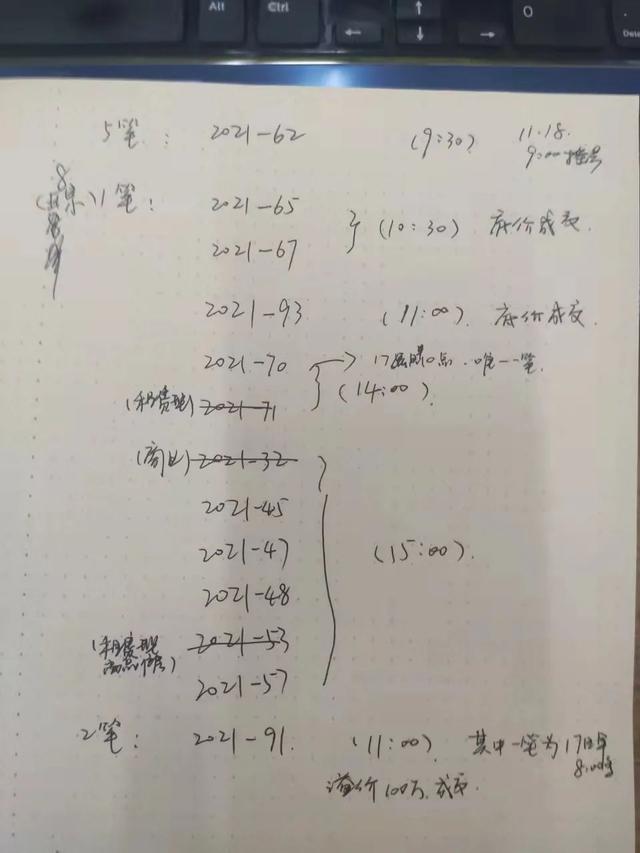 Alt Ctrl
5笔: 2021-62 (9:30) 11.18.
9:00挂号
8
1笔: 2021-65
2021-67 (10:30) 底价成交.
2021-93 (11:00). 底价成交.
2021-70 17 0点.唯一一笔.
2021-71 (14:00).
(商业) 2021-32
2021-45
2021-47 (15:00).
2021-48
2021-53
2021-57
2笔: 2021-91. (11:00). 其中一笔为17日
溢价100万.成交.